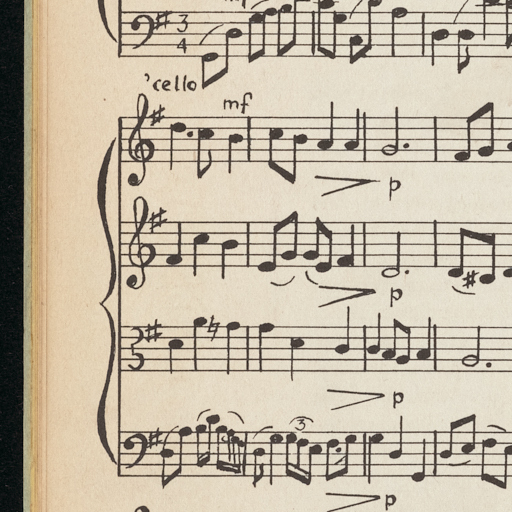 3
4
'cello
mf
p
p
p
3
p